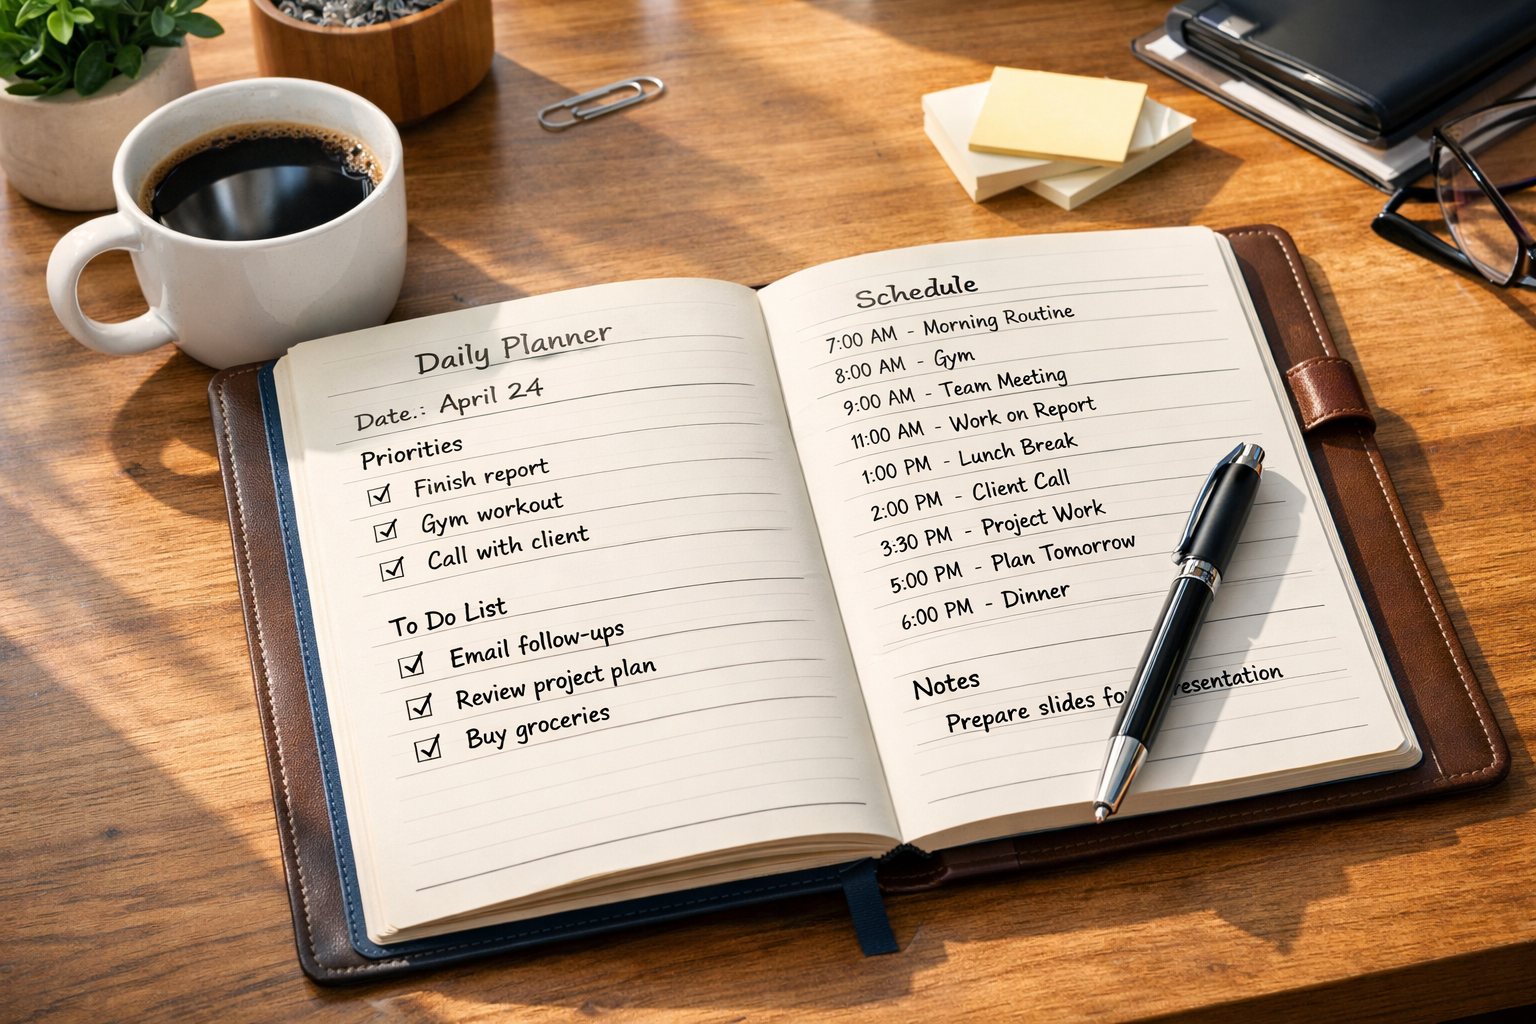 Daily Planner
Date.: April 24
Priorities
Finish report
Gym workout
Call with client
To Do List
Email follow-ups
Review project plan
Buy groceries
Schedule
7:00 AM - Morning Routine
8:00 AM - Gym
9:00 AM - Team Meeting
11:00 AM - Work on Report
1:00 PM - Lunch Break
2:00 PM - Client Call
3:30 PM - Project Work
5:00 PM - Plan Tomorrow
6:00 PM - Dinner
Notes
Prepare slides